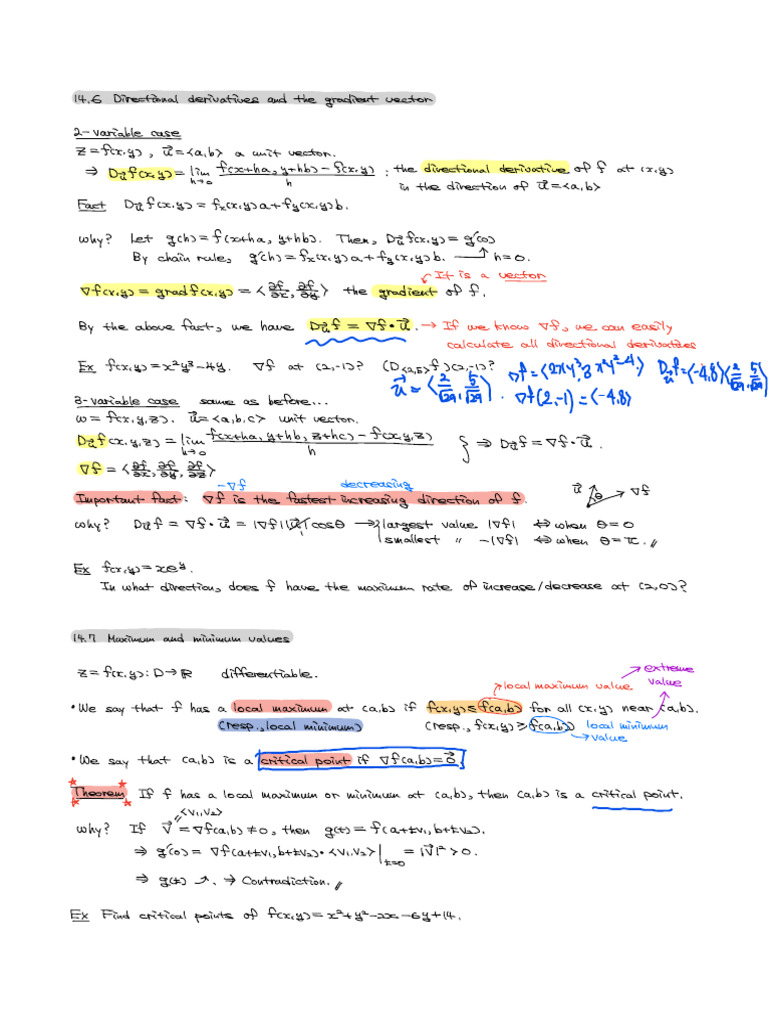 14.6 Directional derivatives and the gradient vector
2-variable case
z=f(x,y), u⃗=<a,b> a unit vector.
⇒ D_u⃗ f(x,y) = lim_{h→0} (f(x+ha, y+hb) - f(x,y))/h : the directional derivative of f at (x,y)
in the direction of u⃗=<a,b>
Fact D_u⃗ f(x,y) = f_x(x,y)a + f_y(x,y)b.
Why? Let g(h) = f(x+ha, y+hb). Then, D_u⃗ f(x,y) = g'(0)
By chain rule, g'(h) = f_x(x,y)a + f_y(x,y)b. h=0.
It is a vector
∇f(x,y) = grad f(x,y) = <∂f/∂x, ∂f/∂y> the gradient of f.
By the above fact, we have D_u⃗ f = ∇f • u⃗. → If we know ∇f, we can easily
calculate all directional derivatives
Ex f(x,y) = x²y³-4y. ∇f at (2,-1)? (D_<2,5> f)(2,-1)? ∇f = <2xy³, 3x²y²-4.> D_u⃗ f = <-4,8><2/√29, 5/√29>
u⃗ = <2/√29, 5/√29>. ∇f(2,-1) = <-4,8>
3-variable case same as before...
w = f(x,y,z). u⃗=<a,b,c> unit vector.
D_u⃗ f(x,y,z) = lim_{h→0} (f(x+ha, y+hb, z+hc) - f(x,y,z))/h } ⇒ D_u⃗ f = ∇f • u⃗.
∇f = <∂f/∂x, ∂f/∂y, ∂f/∂z>
-∇f decreasing
Important fact: ∇f is the fastest increasing direction of f. u⃗ θ ∇f
Why? D_u⃗ f = ∇f • u⃗ = |∇f||u⃗|cosθ → { largest value |∇f| ⇔ when θ=0
1 smallest " -|∇f| ⇔ when θ=π. //
Ex f(x,y) = xe^y.
In what direction, does f have the maximum rate of increase/decrease at (2,0)?
14.7 Maximum and minimum values
z = f(x,y) : D→ℝ differentiable. → extreme
→ local maximum value value
• We say that f has a local maximum at (a,b) if f(x,y) ≤ f(a,b) for all (x,y) near (a,b).
(resp., local minimum) (resp., f(x,y) ≥ f(a,b)) local minimum
→ value
• We say that (a,b) is a critical point if ∇f(a,b) = 0⃗.
Theorem If f has a local maximum or minimum at (a,b), then (a,b) is a critical point.
<v₁,v₂>
Why? If v⃗ = ∇f(a,b) ≠ 0, then g(t) = f(a+tv₁, b+tv₂).
⇒ g'(0) = ∇f(a+tv₁, b+tv₂)•<v₁,v₂>|_{t=0} = |v⃗|² > 0.
⇒ g(t) ↗. → Contradiction. //
Ex Find critical points of f(x,y) = x²+y²-2x-6y+14.